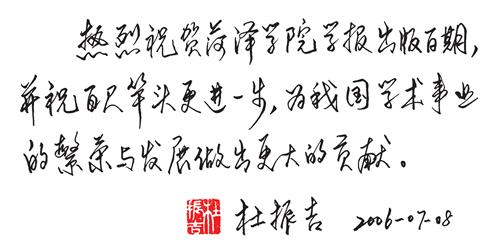 热烈祝贺菏泽学院学报出版百期，
并祝百尺竿头更进一步，为我国学术事业
的繁荣与发展做出更大的贡献。
杜振吉 2006-07-08